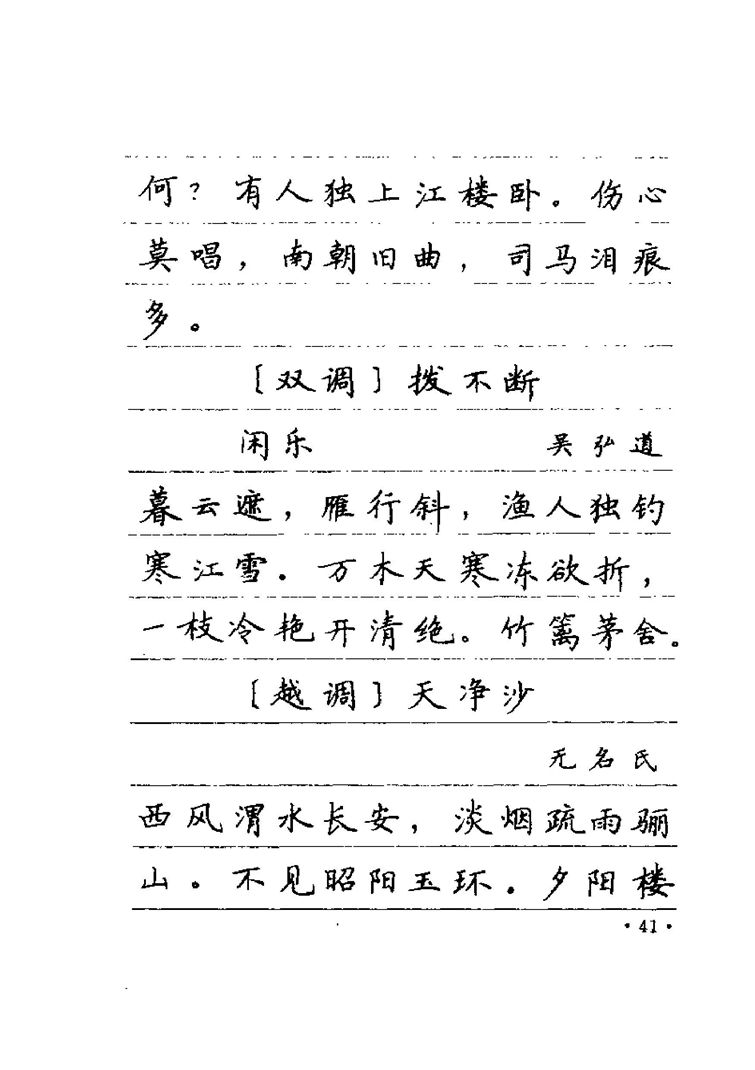 何？有人独上江楼卧。伤心
莫唱，南朝旧曲，司马泪痕
多。
［双调］拨不断
闲乐 吴弘道
暮云遮，雁行斜，渔人独钓
寒江雪。万木天寒冻欲折，
一枝冷艳开清绝。竹篱茅舍。
［越调］天净沙
无名氏
西风渭水长安，淡烟疏雨骊
山。不见昭阳玉环。夕阳楼
·41·